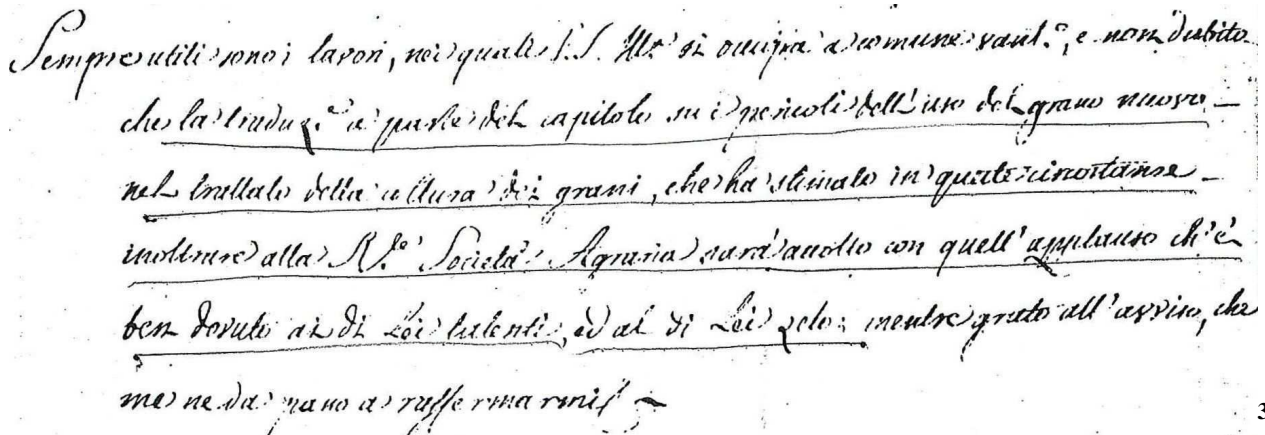 Sempre utili sono i lavori, nei quali V. S. Ill.ª si occupa a comune vant.º, e non dubito
che la traduz.e a parte del capitolo su i pericoli dell'uso del grano nuovo
nel trattato della coltura dei grani, che ha stimato in queste circostanze
inoltrare alla R.le Società Agraria sarà accolto con quell'applauso ch'è
ben dovuto ai di Lei talenti, ed al di Lei zelo: mentre grato all'avviso, che
me ne dà passo a raffermarmi
3